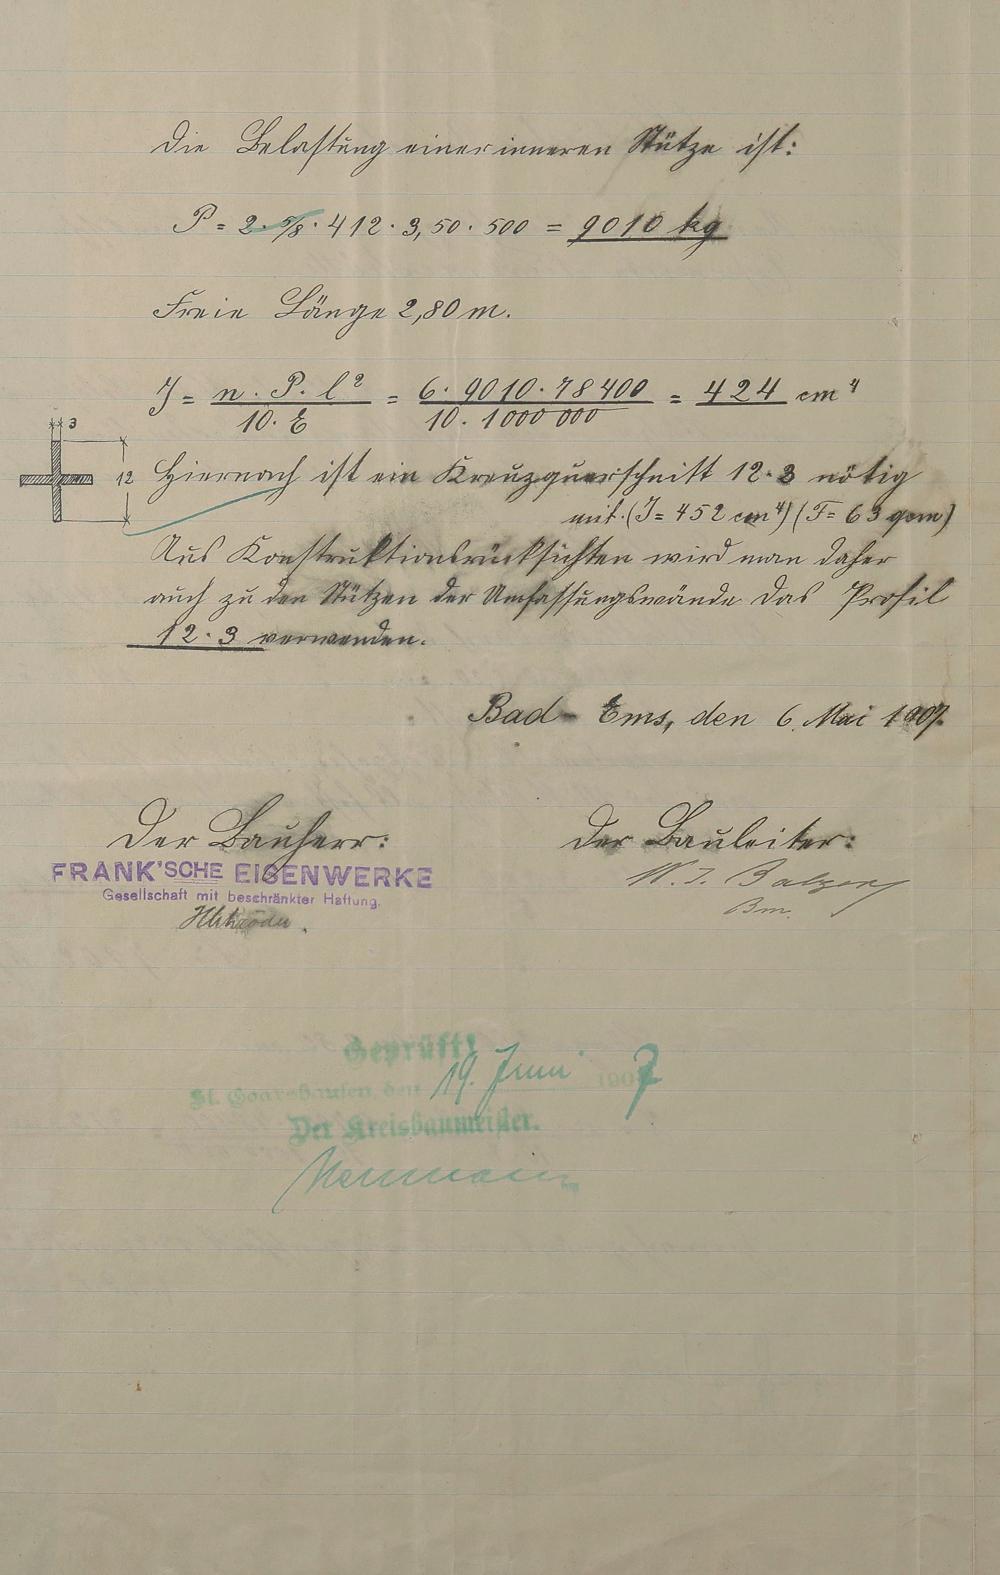 Die Belastung einer inneren Stütze ist:
P = 2 · 5/8 · 412 · 3,50 · 500 = 9010 kg
Freie Länge 2,80 m.
J = n · P · l² / 10 · E = 6 · 9010 · 78400 / 10 · 1000 000 = 424 cm⁴
3
12
Hiernach ist ein Kreuzquerschnitt 12 · 3 nötig
mit (J = 452 cm⁴) (F = 63 qcm)
Aus Konstruktionsrücksichten wird man daher
auch zu den Stützen der Umfassungswände das Profil
12 · 3 verwenden.
Bad-Ems, den 6. Mai 1907.
Der Bauherr:
Der Bauleiter:
FRANK'SCHE EISENWERKE
Gesellschaft mit beschränkter Haftung.
W. J. Balzer
Bm.
Geprüft!
St. Goarshausen, den 19. Juni 1907
Der Kreisbaumeister.